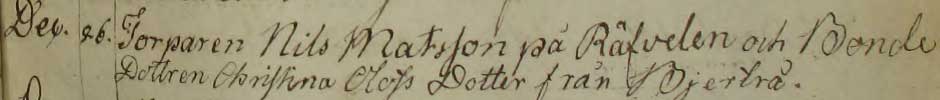 Dec. 26. Torparen Nils Matsson på Räfvelen och Bonde
Dottren Christina Olofs Dotter från Bjertrå.